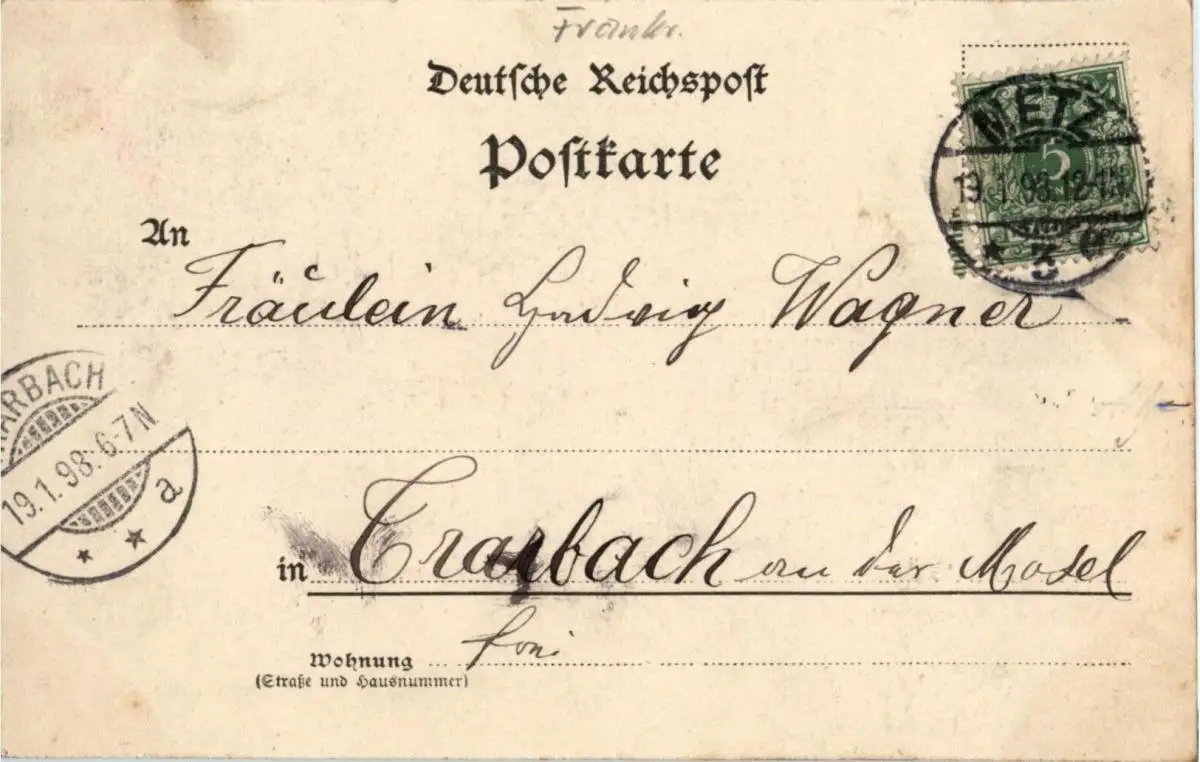 Frankr.
Deutsche Reichspost
Postkarte
METZ
19.1.98.12-1N.
* 3 g
5
An
Fräulein Hedwig Wagner
ARBACH
19.1.98.6-7N
* * a
in Trarbach an der Mosel
Wohnung
(Straße und Hausnummer)